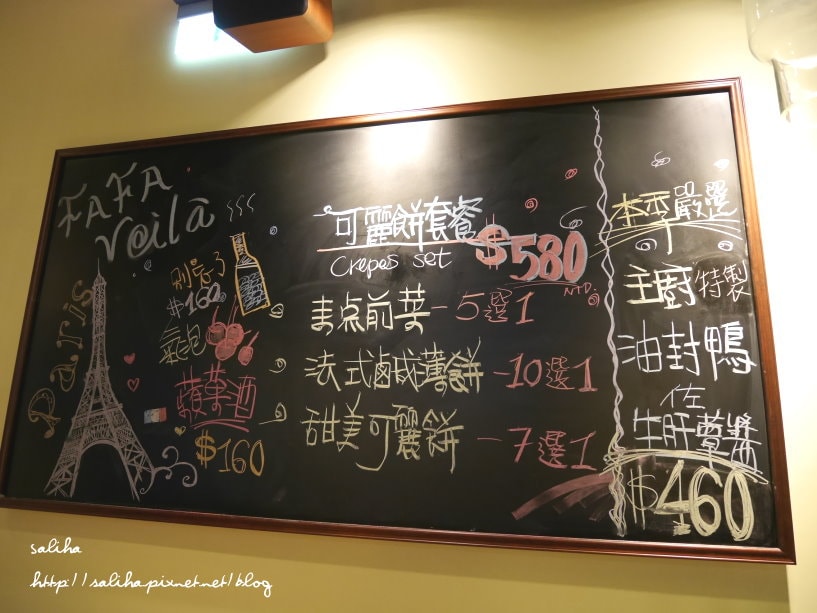 FAFA
Voilà
Paris
別忘了
$160
氣泡
蘋果酒
$160
可麗餅套餐
Crepes set
$580
NTD.
前菜-5選1
法式鹹薄餅-10選1
甜美可麗餅-7選1
本季嚴選
主廚特製
油封鴨
佐
生肝蕈醬
$460
saliha
http://saliha.pixnet.net/blog